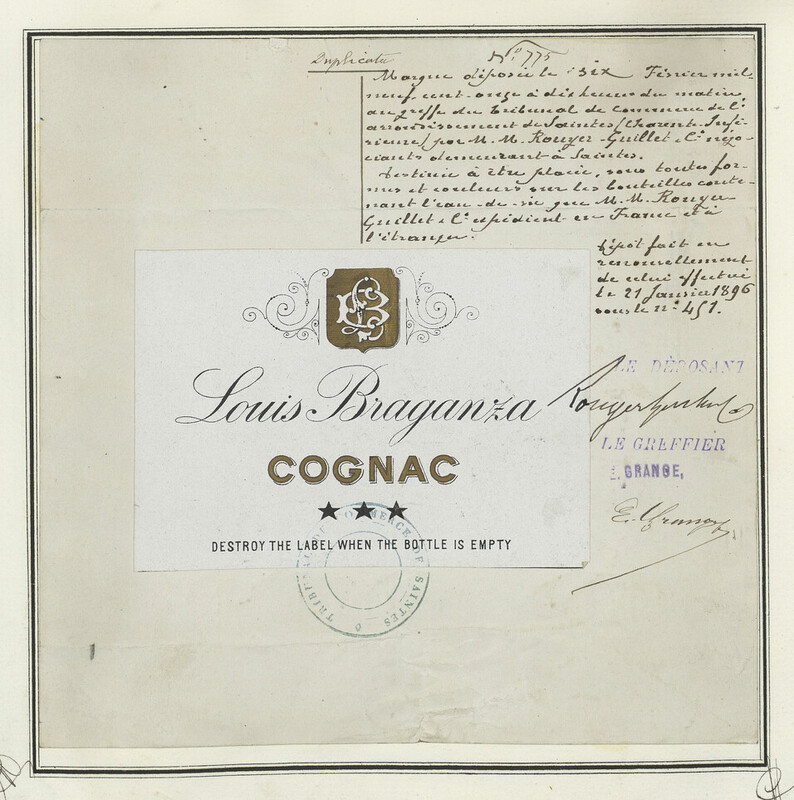 Duplicata
N° 775
Marque déposée le six Février mil
neuf cent onze à dix heures du matin
au greffe du Tribunal de Commerce de l'
arrondissement de Saintes (Charente Infé-
rieure) par M. M. Rouyer Guillet & Cie négo-
ciants demeurant à Saintes.
Destinée à être placée, sous toutes for-
mes et couleurs sur les bouteilles conte-
nant l'eau-de-vie que M. M. Rouyer
Guillet & Cie expédient en France et à
l'étranger.
Dépôt fait en
renouvellement
de celui effectué
le 21 Janvier 1896
sous le n° 451.
LB
Louis Braganza
COGNAC
★ ★ ★
DESTROY THE LABEL WHEN THE BOTTLE IS EMPTY
LE DÉPOSANT
LE GREFFIER
E. GRANGE,
E. Grange
TRIBUNAL DE COMMERCE DE SAINTES